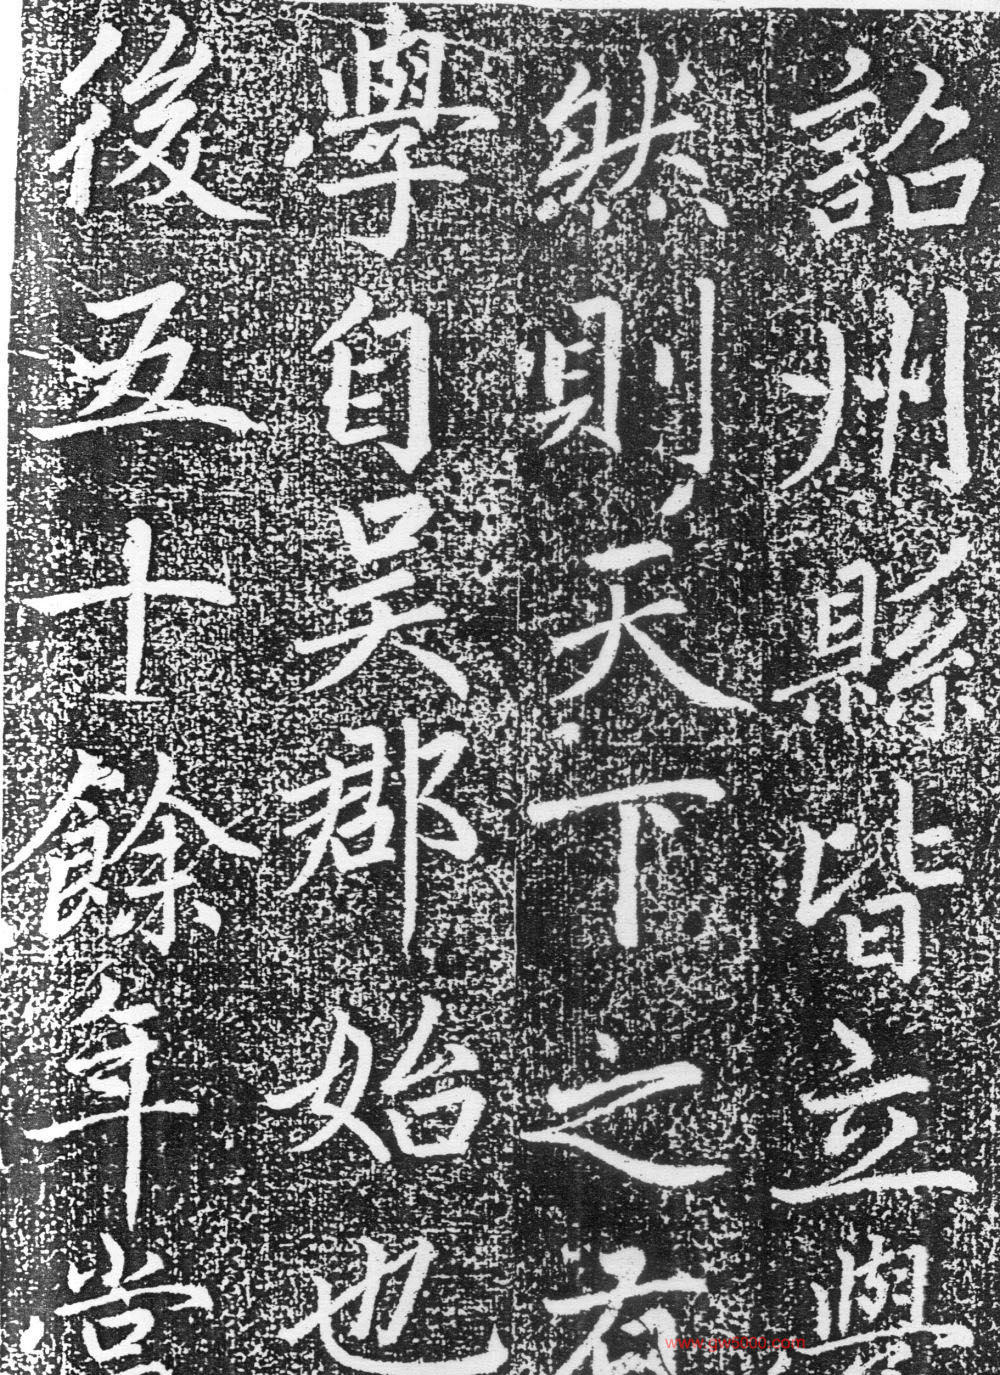 詔州縣皆立學
然則天下之有
學自吳郡始也
後五十餘年當
www.gw8000.com